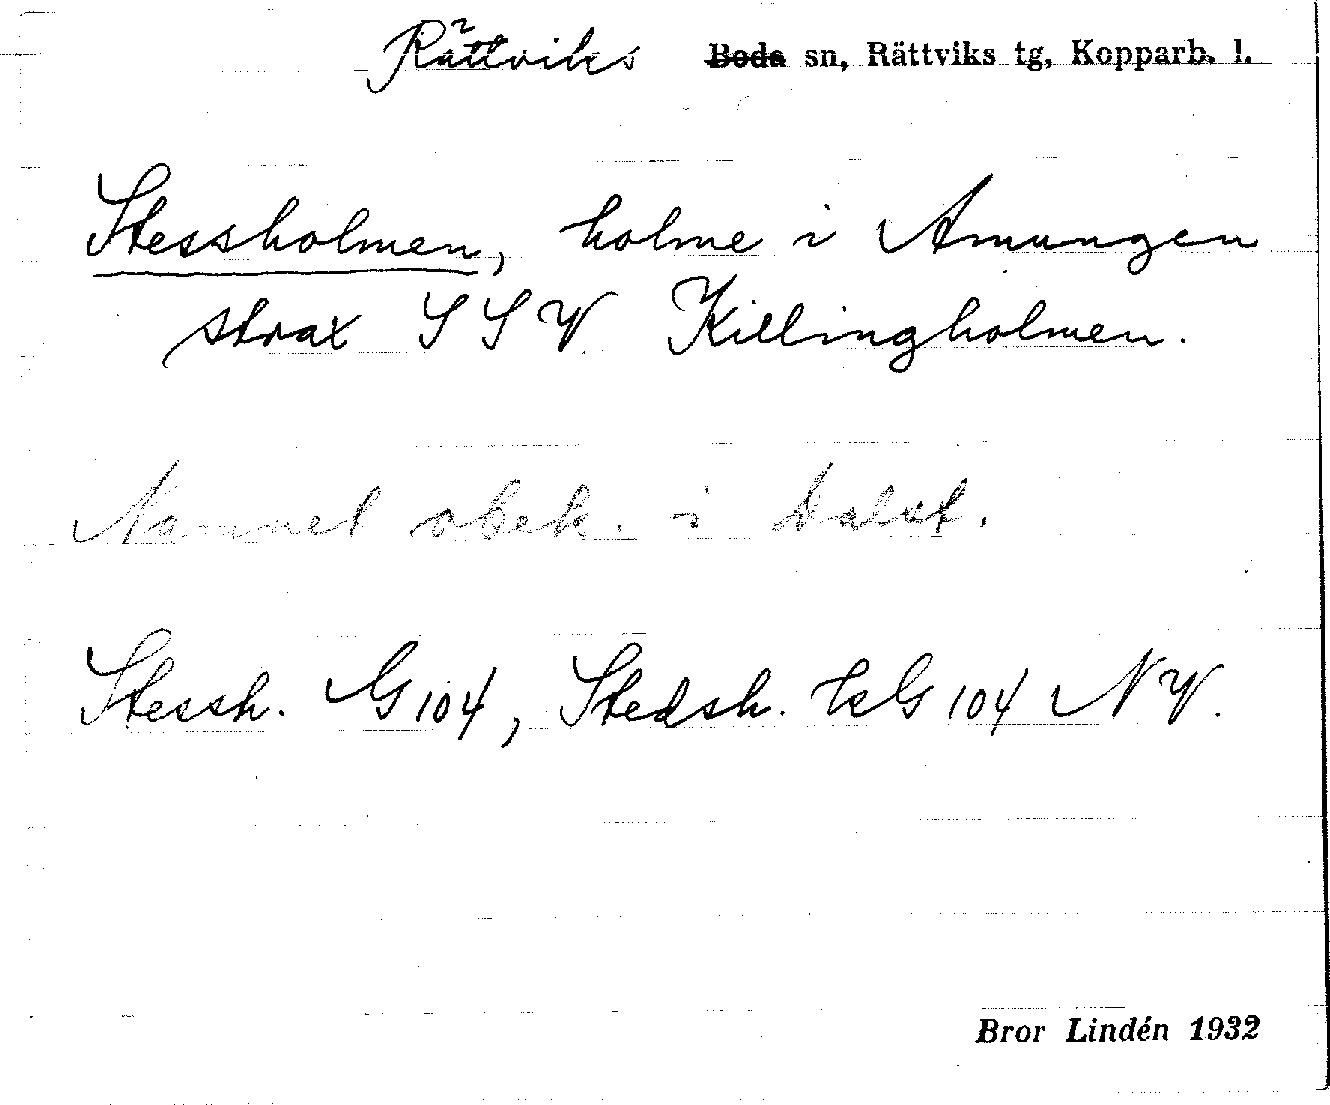 Rättviks Boda sn, Rättviks tg, Kopparb. l.
Stessholmen, holme i Amungen
strax SSV Killingholmen.
Namnet obek. i Dalst.
Stessh. G 104, Stedsh. KG 104 NV.
Bror Lindén 1932